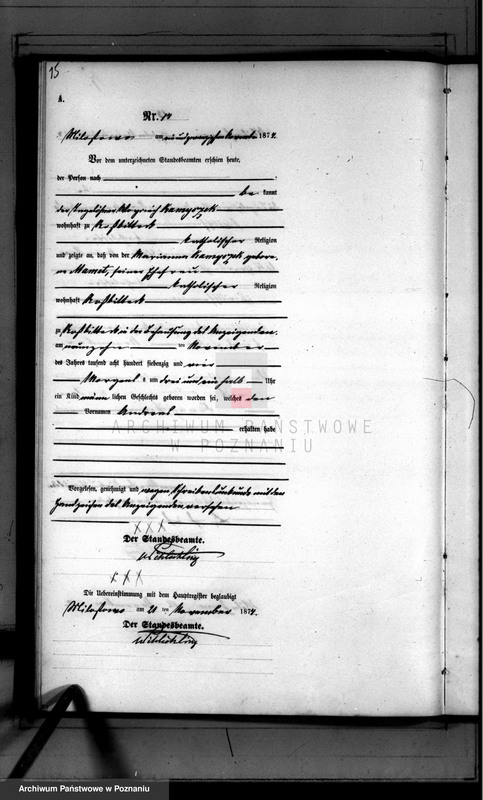 15
A.
Nr. 10
Miloslawo am einundzwanzigsten November 1874.
Vor dem unterzeichneten Standesbeamten erschien heute,
der Person nach
be kannt
der Tagelöhner
wohnhaft zu
katholischer Religion
und zeigte an, daß von der Marianna geborenen
Mamet, seiner Ehefrau
katholischer Religion
wohnhaft
zu in der Behausung des Anzeigenden
am neunzehn ten November
des Jahres tausend acht hundert siebenzig und vier
Morgens um drei und ein halb Uhr
ein Kind männlichen Geschlechts geboren worden sei, welches den
Vornamen Andreas
erhalten habe
Vorgelesen, genehmigt und wegen Schreibensunkunde mit den
Handzeichen des Anzeigenden versehen
XXX
Der Standesbeamte.
XXX
Die Uebereinstimmung mit dem Hauptregister beglaubigt
am 21 ten November 1874.
Der Standesbeamte.
ARCHIWUM PAŃSTWOWE
W POZNANIU
Archiwum Państwowe w Poznaniu